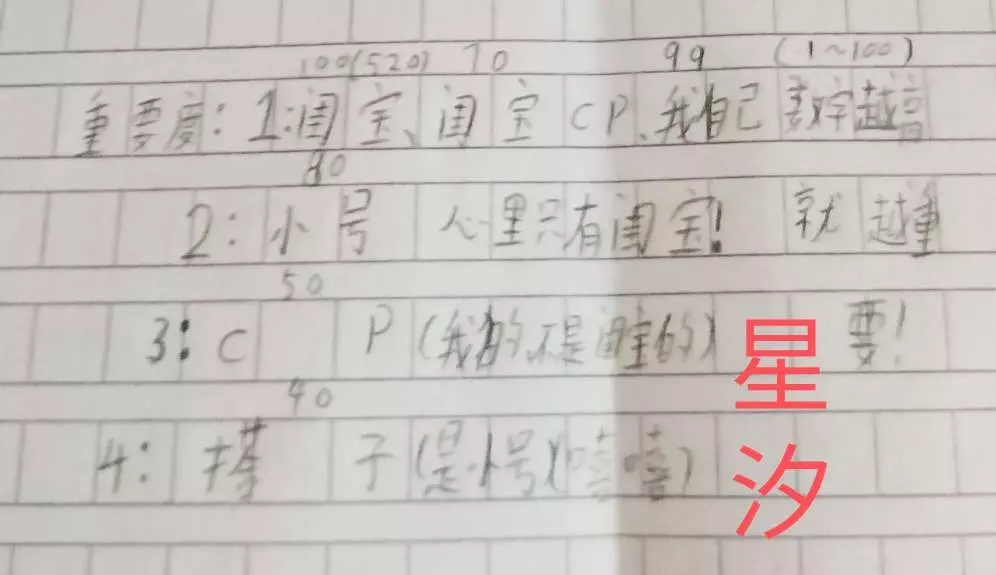 100(520) 70 99 (1~100)
重要度:1:闺宝、闺宝CP、我自己 数字越高
80
2:小号 心里只有闺宝! 就越重
50
3:CP(我的,不是闺宝的) 要!
40
4:搭子(是小号)(嘻嘻)
星汐